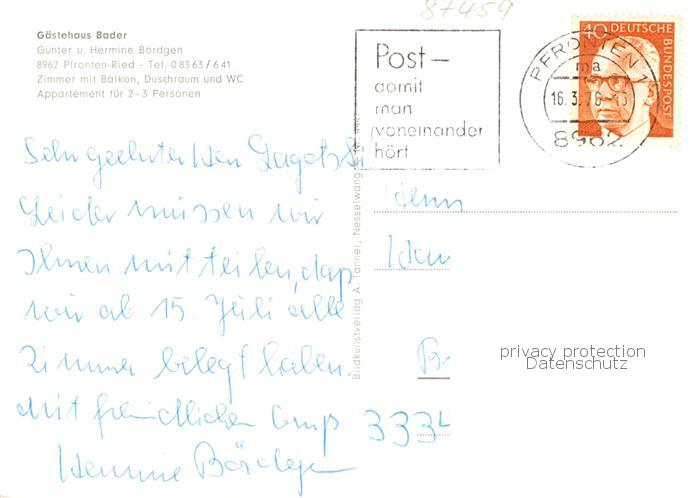 87459
Gästehaus Bader
Günter u. Hermine Bördgen
8962 Pfronten-Ried - Tel. 08363/641
Zimmer mit Balkon, Duschraum und WC
Appartement für 2-3 Personen
Post-
damit
man
voneinander
hört
PFRONTEN 1
ma
16.3.76-15
8962
40 DEUTSCHE
BUNDESPOST
Sehr geehrter Herr
Leider müssen wir
Ihnen mitteilen, daß
wir ab 15. Juli alle
Zimmer belegt haben.
Mit freundlichen Gruß
Hermine Bördgen
Bildkunstverlag A. Tanner, Nesselwang
Herrn
privacy protection
Datenschutz
333